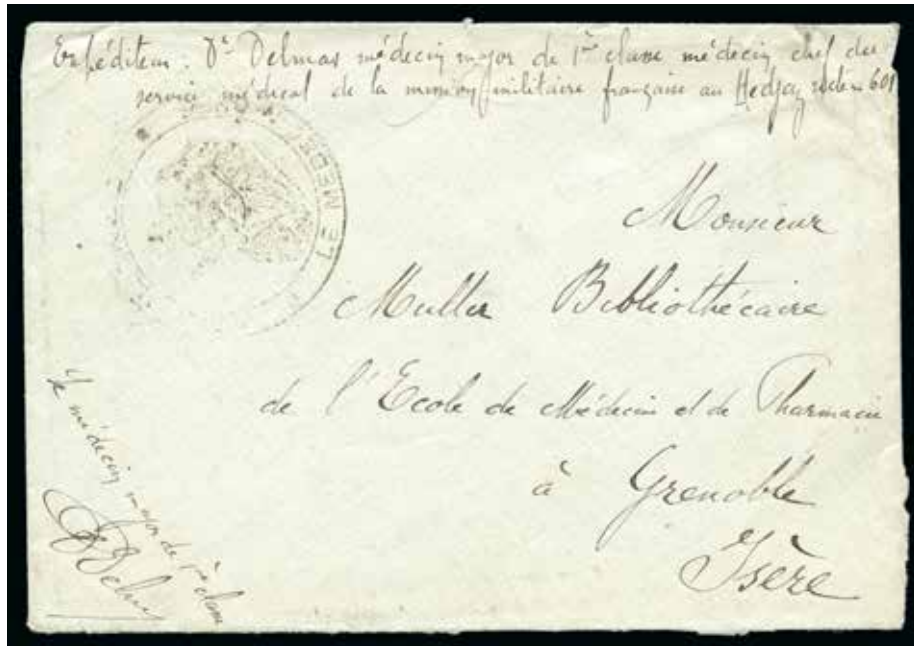 Expéditeur : Dr Delmas médecin major de 1ère classe médecin chef du
service médical de la mission militaire française au Hedjaz 601
LE MÉDE
Monsieur
Muller Bibliothécaire
de l'Ecole de Médecine et de Pharmacie
à Grenoble
Isère
Le médecin major de 1ère classe
Delmas